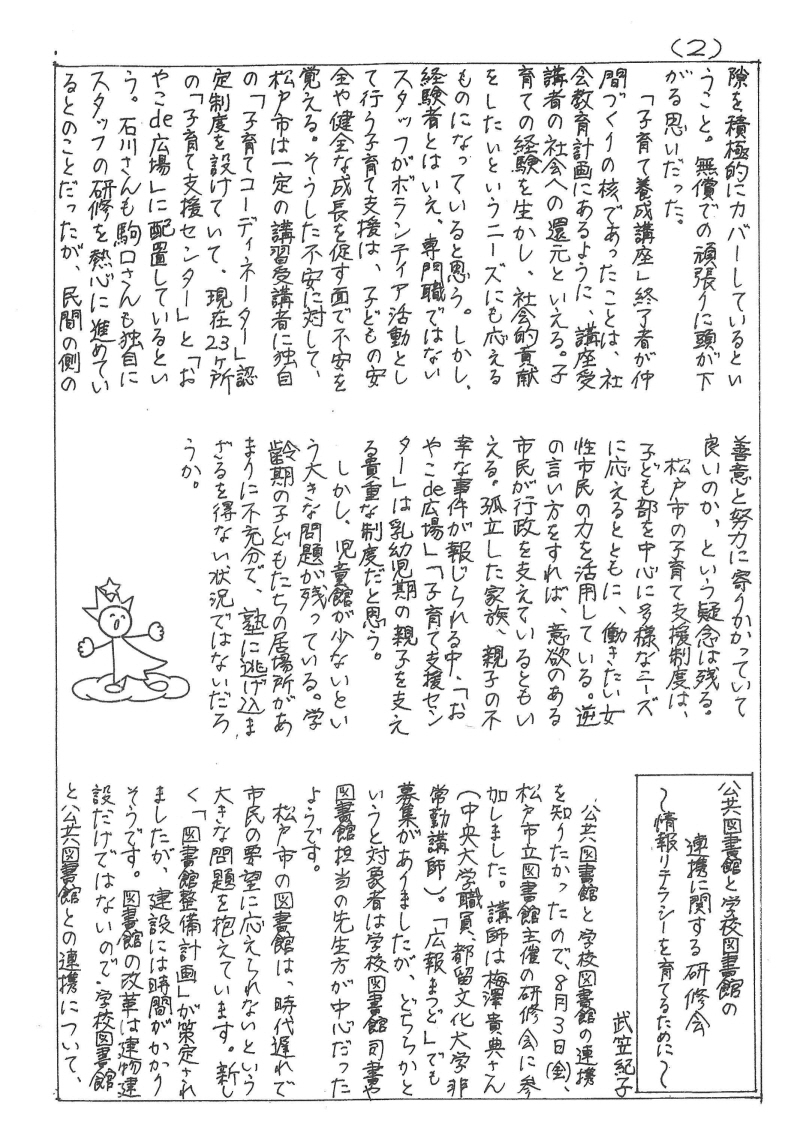 (2)
隙を積極的にカバーしているとい
うこと。無償での頑張りに頭が下
がる思いだった。
「子育て養成講座」終了者が仲
間づくりの核であったことは、社
会教育計画にあるように、講座受
講者の社会への還元といえる。子
育ての経験を生かし、社会的貢献
をしたいというニーズにも応える
ものになっていると思う。しかし、
経験者とはいえ、専門職ではない
スタッフがボランティア活動とし
て行う子育て支援は、子どもの安
全や健全な成長を促す面で不安を
覚える。そうした不安に対して、
松戸市は一定の講習受講者に独自
の「子育てコーディネーター」認
定制度を設けていて、現在23ヶ所
の「子育て支援センター」と「お
やこde広場」に配置しているとい
う。石川さんも駒口さんも独自に
スタッフの研修を熱心に進めてい
るとのことだったが、民間の側の
善意と努力に寄りかかっていて
良いのか、という疑念は残る。
松戸市の子育て支援制度は、
子ども部を中心に多様なニーズ
に応えるとともに、働きたい女
性市民の力を活用している。逆
の言い方をすれば、意欲のある
市民が行政を支えているともい
える。孤立した家族、親子の不
幸な事件が報じられる中、「お
やこde広場」「子育て支援セン
ター」は乳幼児期の親子を支え
る貴重な制度だと思う。
しかし、児童館が少ないとい
う大きな問題が残っている。学
齢期の子どもたちの居場所があ
まりに不充分で、塾に逃げ込ま
ざるを得ない状況ではないだろ
うか。
公共図書館と学校図書館の
連携に関する研修会
～情報リテラシーを育てるために～
武笠紀子
公共図書館と学校図書館の連携
を知りたかったので、8月3日(金)、
松戸市立図書館主催の研修会に参
加しました。講師は梅澤貴典さん
(中央大学職員、都留文化大学非
常勤講師)。「広報まつど」でも
募集がありましたが、どちらかと
いうと対象者は学校図書館司書や
図書館担当の先生方が中心だった
ようです。
松戸市の図書館は、時代遅れで
市民の要望に応えられないという
大きな問題を抱えています。新し
く「図書館整備計画」が策定され
ましたが、建設には時間がかかり
そうです。図書館の改革は建物建
設だけではないので、学校図書館
と公共図書館との連携について、